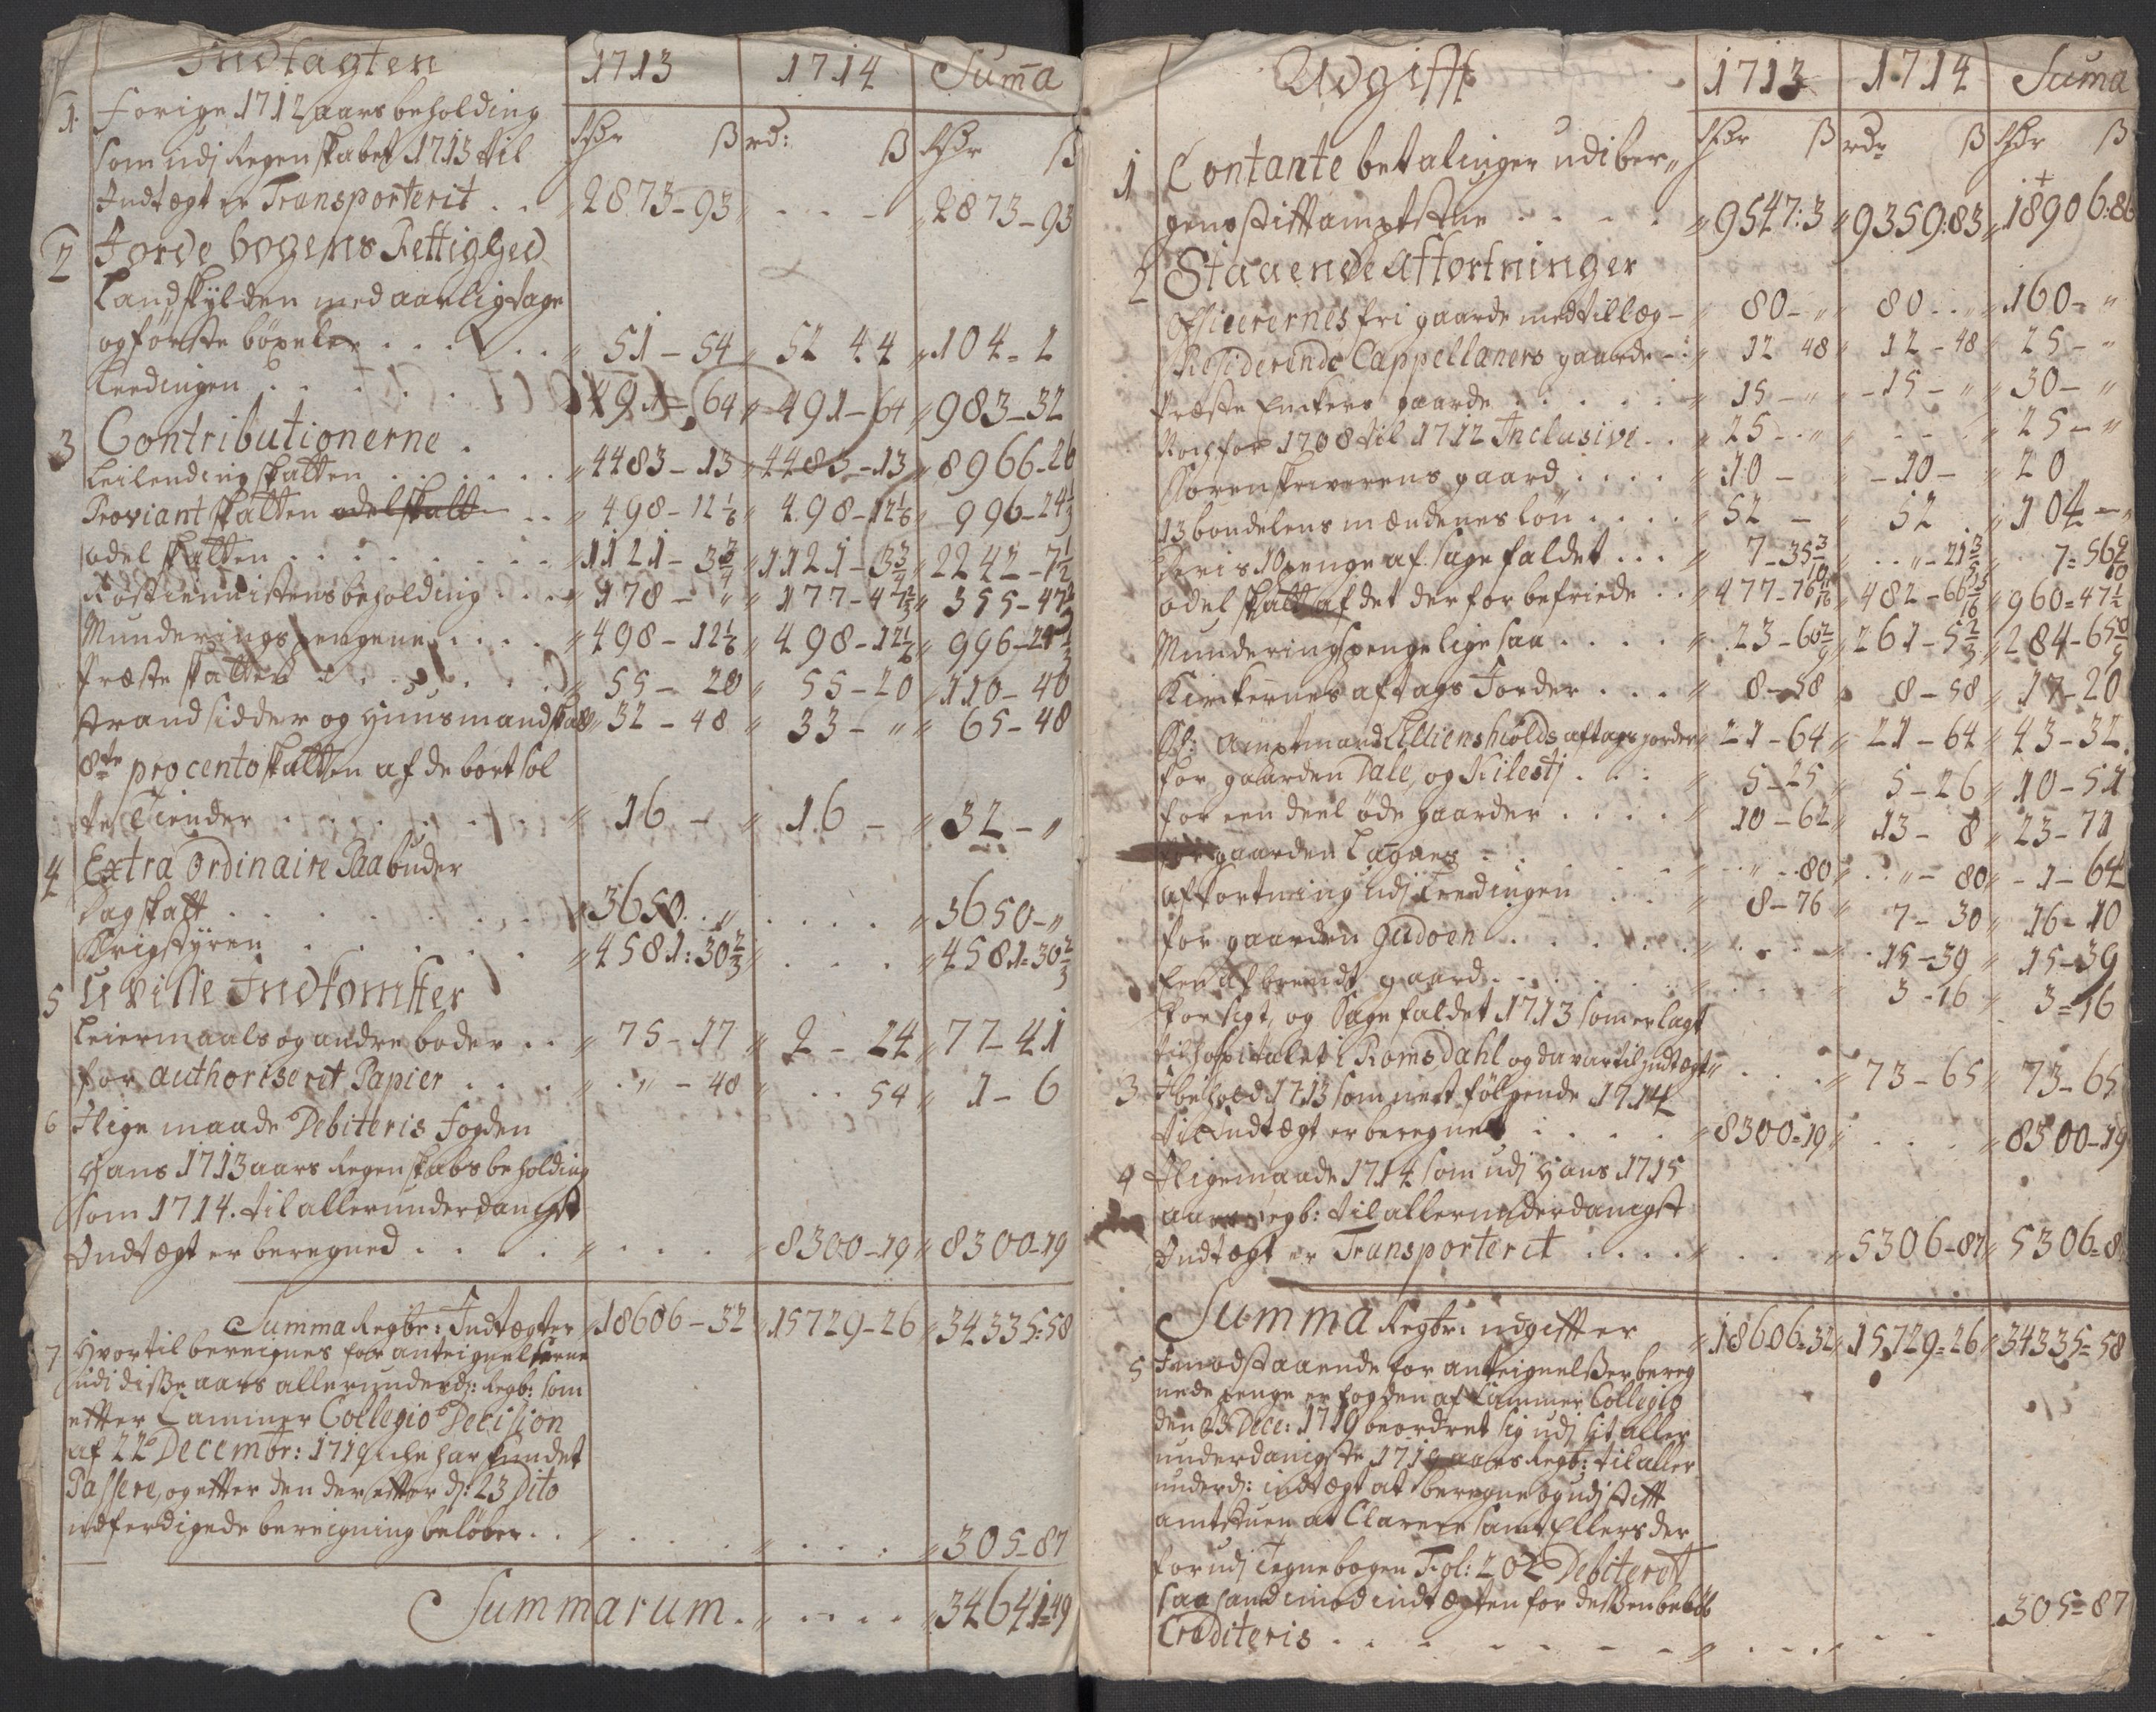 Indtagten 1713 1714 Suma
1. Forige 1712 aars beholding
som udj Regenskabet 1713 til Rdr ß rd: ß Rdr ß
Indtegt er Transporterit . . 2873-93 . . . - 2873-93
2 Jorde bogens Rettighed
Landskylden med aarlig tage
og förste böxeler . . . . . 51-54 52 44 104-2
Leedingen . . . . 491-64 491-64 983-32
3 Contributionerne .
Leilendingskatten . . . . . . 4483-13 4483-13 8966-26
Proviantskatten odelskatt . . 498-12 1/6 498-12 1/6 996-24 1/3
odelskatten . . . . . . . 1121-3 3/4 1121-3 3/4 2242-7 1/2
Rostienistens beholding . . . 178-" 177-47 1/3 355-47 1/3
Munderings pengene . . . . 498-12 1/6 498-12 1/6 996-24 1/3
Præsteskatten . . . . . . 55-20 55-20 110-40
Strandsidder og Huusmandskatt 32-48 33-" 65-48
8te procento skatten af de bort sol
te Tiender . . . . . . . 16- 16- 32-"
4 Extra Ordinaire Paabuder
Dagskatt . . . . . . . 3650." . . . . 3650-"
Krigstyren . . . . . . 4581:30 2/3 . . . . 4581=30 2/3
5 Uvisse Indkomster
Leiermaals og andre böder . . 75-17 2-24 77-41
for authoriserit Papier . . . . " - 48 . . 54 1-6
6 Ilige maade Debiteris Fogden
Hans 1713 aars Regenskabs beholding
som 1714. til allerunderdanigst
Indtegt er beregned . . . . . . . . 8300-19 8300-19
Summa Regbr: Indtegter 18606-32 15729-26 34335=58
7 Hvortil beregnes for anteignelserne
udj disse aars allerunderd: Regb: som
efter Cammer Collegio Decision
af 22de Decembr: 1719 iche har kundet
Passere, og efter den derefter d: 23 Dito
udferdigede bereigning beløber . . . . . . . . . . 305-87
Summarum . . . . . 34641=49
Udgift 1713 1714 Suma
Rdr ß rdr ß Rdr ß
1 Contante betalinger udi ber,,
gens stiftamptstue . . . . . 9547:3 9359:83 18906:86
2 Staaende Affortninger
Officerernes fri gaarde med tillæg - 80-" 80 . ." 160-"
Residerende Cappellaners gaarde - 12 48 12-48 25-"
Præste Enkers gaarde . . . . . 15-" -15-" 30-"
Noch for 1708 til 1712 Inclusive . . 25-." . . . . 25-"
Sorenskriverens gaard . . . . 10- -10- 20
13 bondelensmændenes lön . . . . 52- 52 . 104-"
Deris 10 penge af sagefaldet . . . 7-35 3/10 . ."-21 3/5 7=56 9/10
odelskatt af det der for befriede . . 477-76 482-66 960=47 1/2
Munderingspenge ligesaa . . . . 23-60 2/9 261-5 2/3 284-65 8/9
Kirkernes aftags Jorder . . . 8-58 8-58 17-20
Sl: Amptmand Lilliensbiölds aftags jorder 21-64 21-64 43-32
for gaarden Dale, og Kilestj . . . 5-25 5-26 10-51
for een deel öde gaarder . . . . 10-62 13-8 23-71
for gaarden Lagnes - . . . . . " . . 80 . ."- 80 - 1-64
affortning udj Leedingen . . . 8-76 7-30 16-10
for gaarden Gudoen . . . . . . . . . . 15-39 15-39
Een afbrendt gaard . . . . . . . . . . 3-16 3=16
for sigt, og Sagefaldet 1713 som er lagt
til hospitalet i Romsdahl og da var til jndtegt . . . . 73-65 73-65
3 Ibehold 1713 som nest følgende 1714
til Indtegt er beregnet . . . . 8300=19 . . . . 8300-19
4 Iligemaade 1714 som udj Hans 1715
aars regb: til allerunderdanigst
Indtegt er Transporterit . . . . . . . . 5306-87 5306=87
Summa Regbr: udgifter 18606=32 15729=26 34335=58
5 Imodstaaende for anteignelser bereg
nede penge er fogden af Cammer Collegio
den 23 Dece: 1719 beordret sig udj sit aller
underdanigste 1719 aars Regb: til aller
underd: indtegt at beregne og udj stift
amtstuen at Clarere samt Ellers der
for udj Tegnebogen Fol: 202 Debiteret
saa saa and imod indtegten for dessen beløb
Crediteris . . . . . . . . . . . . . . 305=87